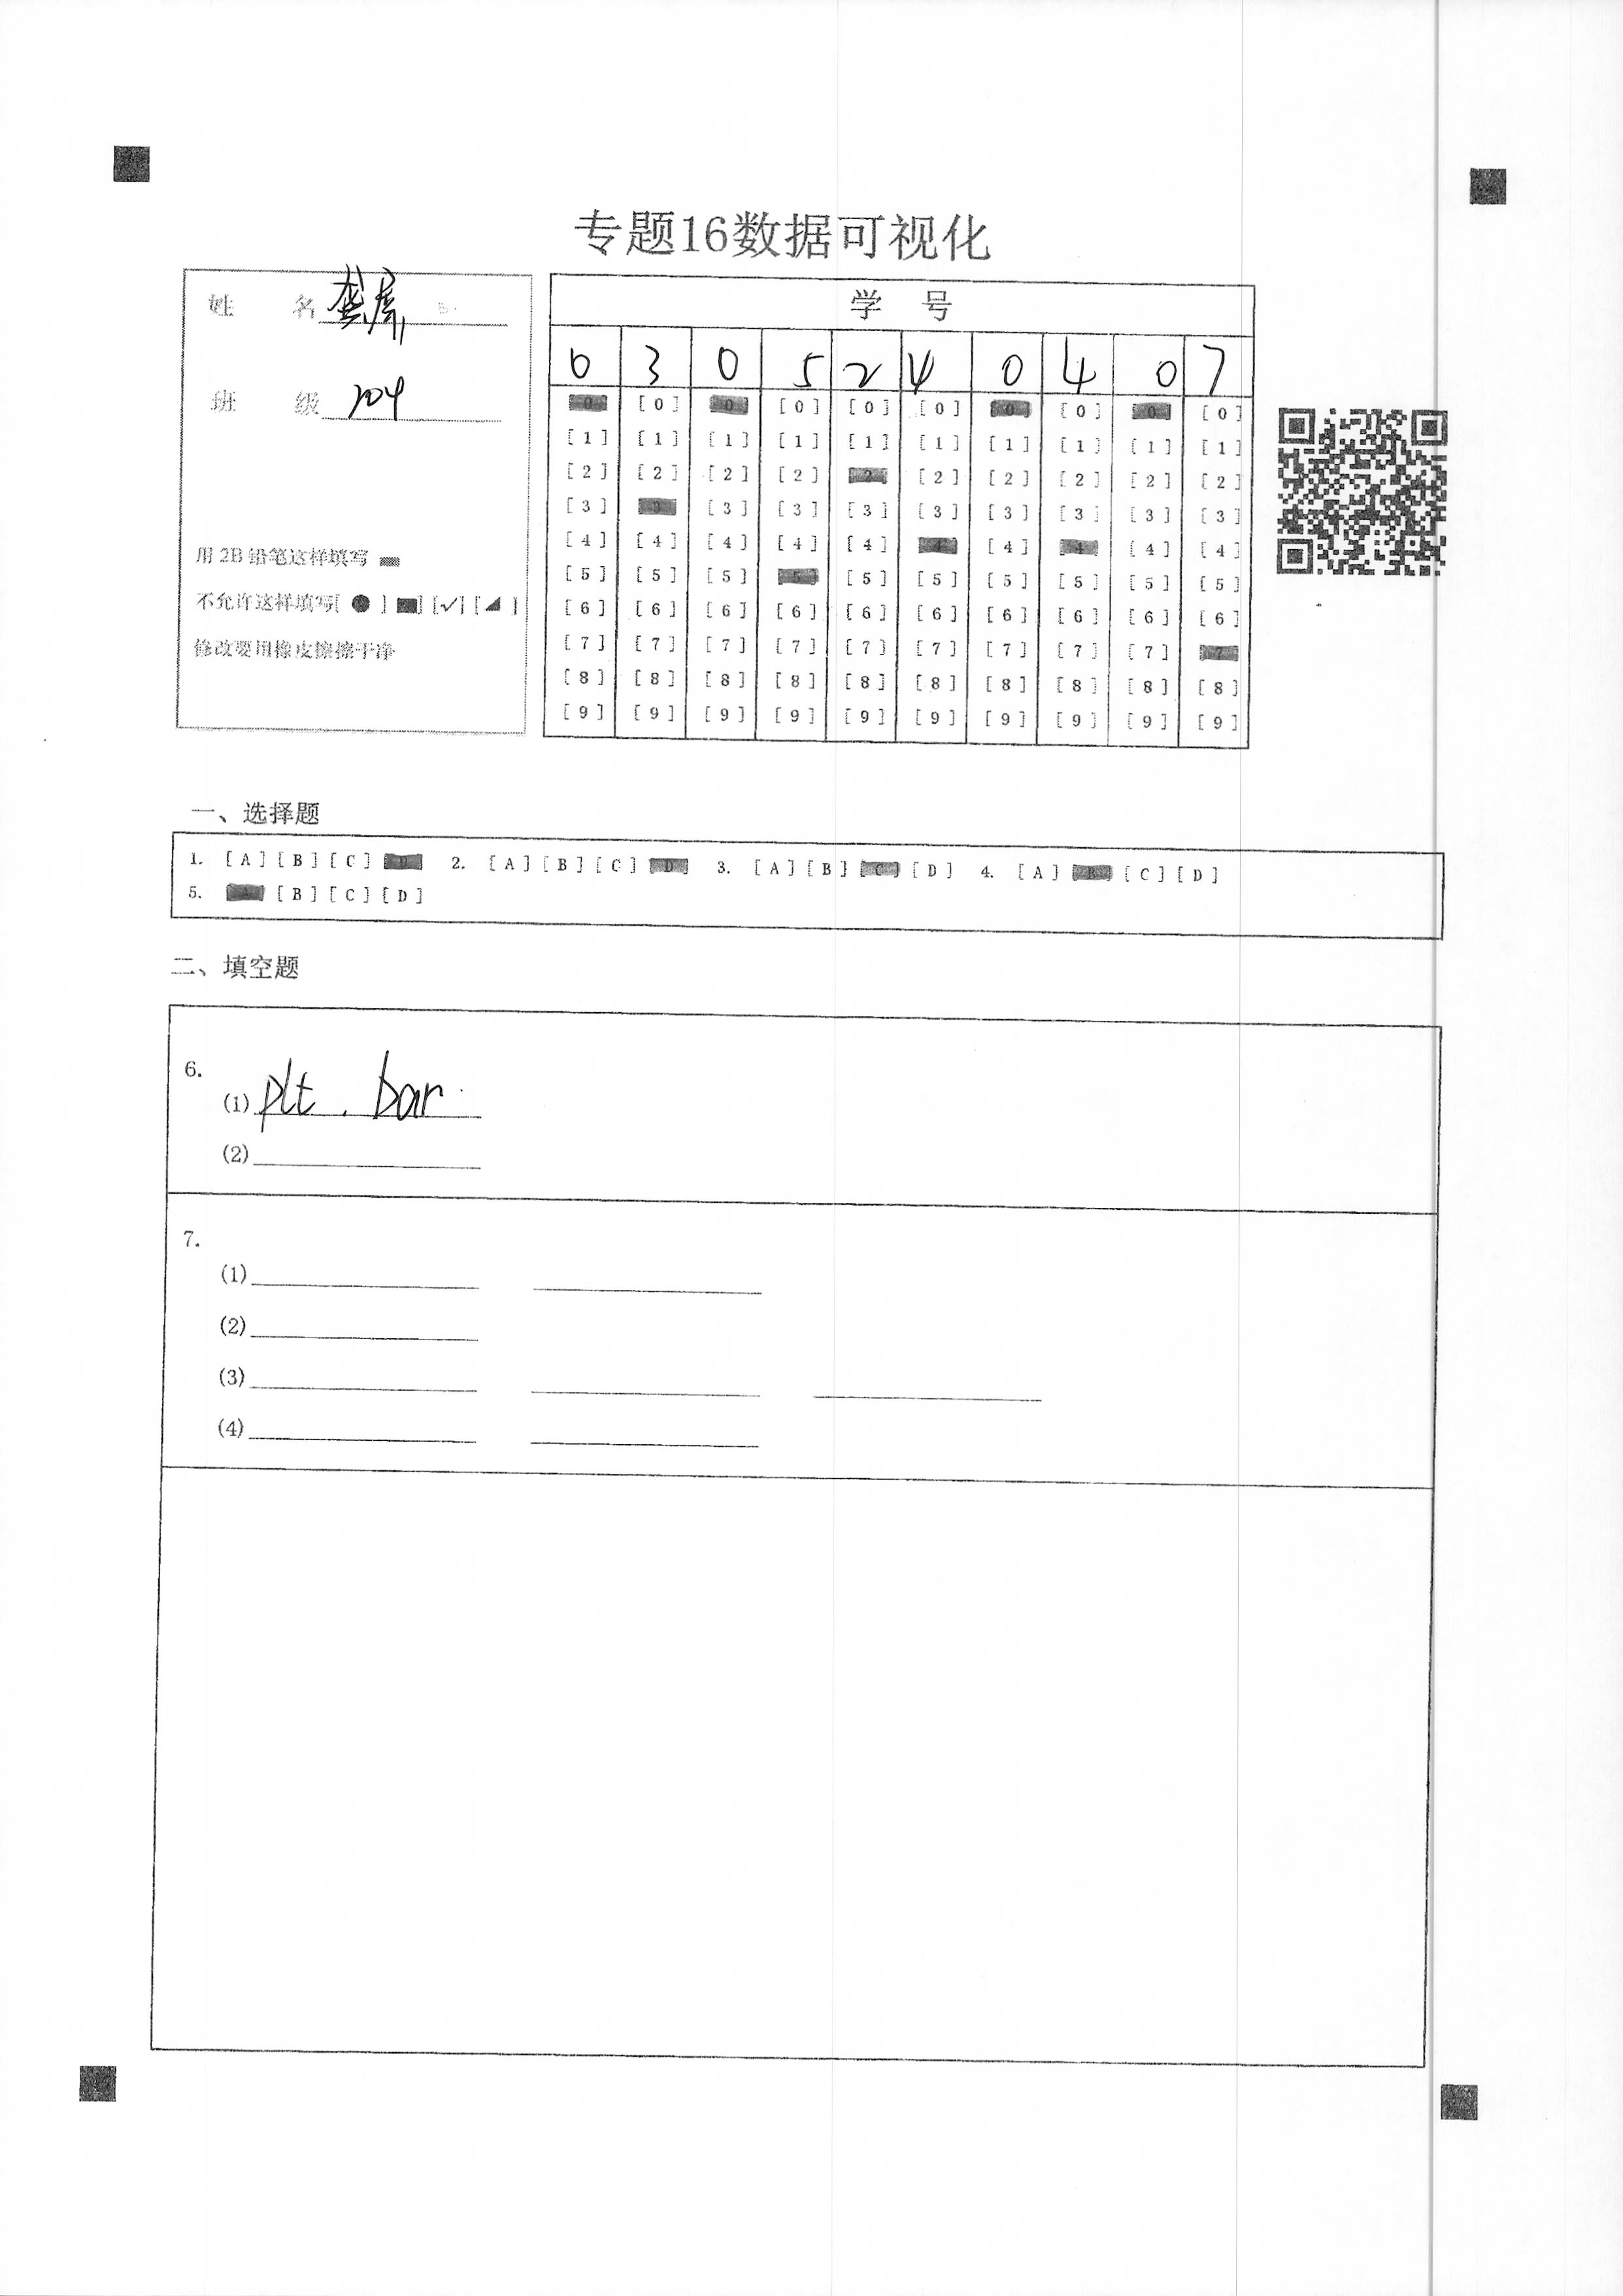 专题16数据可视化
姓 名
班 级 204
用 2B 铅笔这样填写
不允许这样填写[ ● ] ■] [✓] [◢ ]
修改要用橡皮擦擦干净
学 号
0 3 0 5 2 4 0 4 0 7
[0] [0] [0] [0] [0] [0] [0] [0] [0] [0]
[1] [1] [1] [1] [1] [1] [1] [1] [1] [1]
[2] [2] [2] [2] [2] [2] [2] [2] [2] [2]
[3] [3] [3] [3] [3] [3] [3] [3] [3] [3]
[4] [4] [4] [4] [4] [4] [4] [4] [4] [4]
[5] [5] [5] [5] [5] [5] [5] [5] [5] [5]
[6] [6] [6] [6] [6] [6] [6] [6] [6] [6]
[7] [7] [7] [7] [7] [7] [7] [7] [7] [7]
[8] [8] [8] [8] [8] [8] [8] [8] [8] [8]
[9] [9] [9] [9] [9] [9] [9] [9] [9] [9]
一、选择题
1. [A] [B] [C] [D] 2. [A] [B] [C] [D] 3. [A] [B] [C] [D] 4. [A] [B] [C] [D]
5. [A] [B] [C] [D]
二、填空题
6.
(1) plt . bar
(2)
7.
(1)
(2)
(3)
(4)